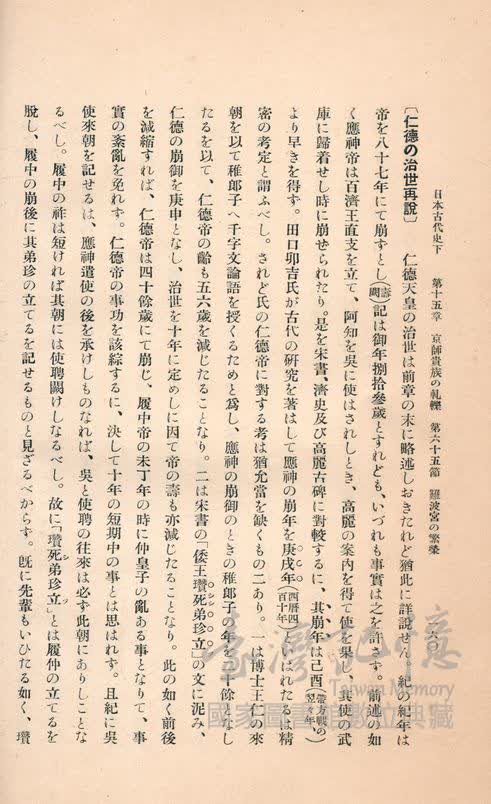 日本古代史下　第十五章　京師貴族の軋轢　第六十五節　難波宮の繁榮
〔仁德の治世再說〕　仁德天皇の治世は前章の末に略述しおきたれど猶此に詳說せん。紀の紀年は
帝を八十七年にて崩ずとし（壽闕）記は御年捌拾參歲とすれども、いづれも事實は之を許さず。前述の如
く應神帝は百濟王直支を立て、阿知を吳に使はされしとき、高麗の案內を得て使を果し、其使の武
庫に歸着せし時に崩ぜられたり。是を宋書、濟史及び高麗古碑に對較するに、其崩年は己酉（帶方戰の翌々年、）
より早きを得す。田口卯吉氏が古代の硏究を著はして應神の崩年を庚戌年（西曆四百十年）といはれたるは精
密の考定と謂ふべし。されど氏の仁德帝に對する考は猶允當を缺くもの二あり。一は博士王仁の來
朝を以て稚郎子へ千字文論語を授くるためと爲し、應神の崩御のときの稚郎子の年を二十餘となし
たるを以て、仁德帝の齡も五六歲を減じたることなり。二は宋書の「倭王瓚死弟珍立」の文に泥み、
仁德の崩御を庚申となし、治世を十年に定めしに因て帝の壽も亦減じたることなり。此の如く前後
を減縮すれば、仁德帝は四十餘歲にて崩じ、履中帝の未丁年の時に仲皇子の亂ある事となりて、事
實の紊亂を免れす。仁德帝の事功を該綜するに、決して十年の短期中の事とは思はれす。且紀に吳
使來朝を記せるは、應神遣使の後を承けしものなれば、吳と使聘の往來は必ず此朝にありしことな
るべし。履中の祚は短ければ其朝には使聘闕けしなるべし。故に「瓚死弟珍立」とは履仲の立てるを
脫し、履中の崩後に其弟珍の立てるを記せるものと見ざるべからす。旣に先輩もいひたる如く、瓚
六
臺灣記憶
Taiwan Memory
國家圖書館數位典藏